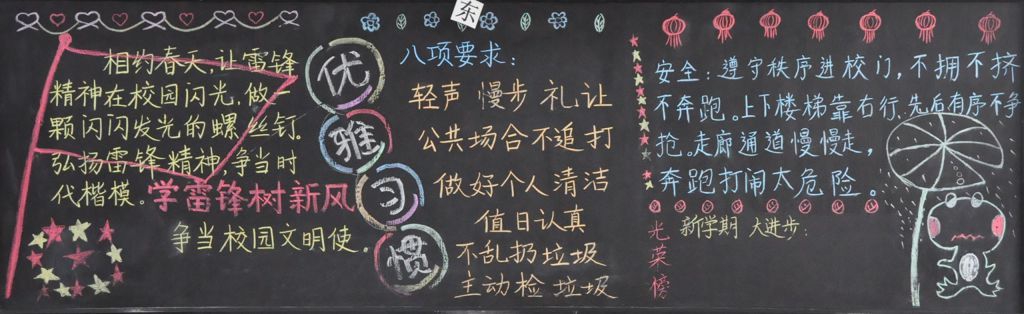 东
相约春天,让雷锋
精神在校园闪光,做一
颗闪闪发光的螺丝钉。
弘扬雷锋精神,争当时
代楷模。学雷锋树新风
争当校园文明使。
优
雅
习
惯
八项要求:
轻声 慢步 礼让
公共场合不追打
做好个人清洁
值日认真
不乱扔垃圾
主动检垃圾
安全:遵守秩序进校门,不拥不挤
不奔跑。上下楼梯靠右行,先后有序不争
抢。走廊通道慢慢走,
奔跑打闹太危险。
光荣榜
新学期 大进步: